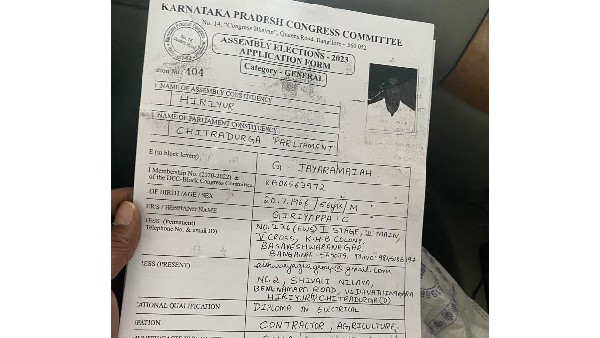 KARNATAKA PRADESH CONGRESS COMMITTEE
No. 14, "Congress Bhavan", Queens Road, Bangalore - 560 052
ASSEMBLY ELECTIONS - 2023
APPLICATION FORM
Category - GENERAL
No. 404
NAME OF ASSEMBLY CONSTITUENCY
HIRIYUR
NAME OF PARLIAMENT CONSTITUENCY
CHITRADURGA PARLIAMENT
(in block letters)
G. JAYARAMAIAH
Membership No. (2020-2022) &
of the DCC-Block Congress Committee
KA06563972
OF BIRTH / AGE / SEX
20.7.1966 / 56yrs / M
HUSBAND NAME
GIRIYAPPA. C
(Permanent)
Telephone No. & email ID)
NO. 236 (EWS) II STAGE, II MAIN,
V CROSS, K.H.B COLONY,
BASAVESHWARANAGAR,
@gmail.com
(PRESENT)
NO.2, SHIVALI NILAYA,
ROAD,
HIRIYUR CHITRADURGA (D)
QUALIFICATION
DIPLOMA IN ELECTRICAL
CONTRACTOR, AGRICULTURE,